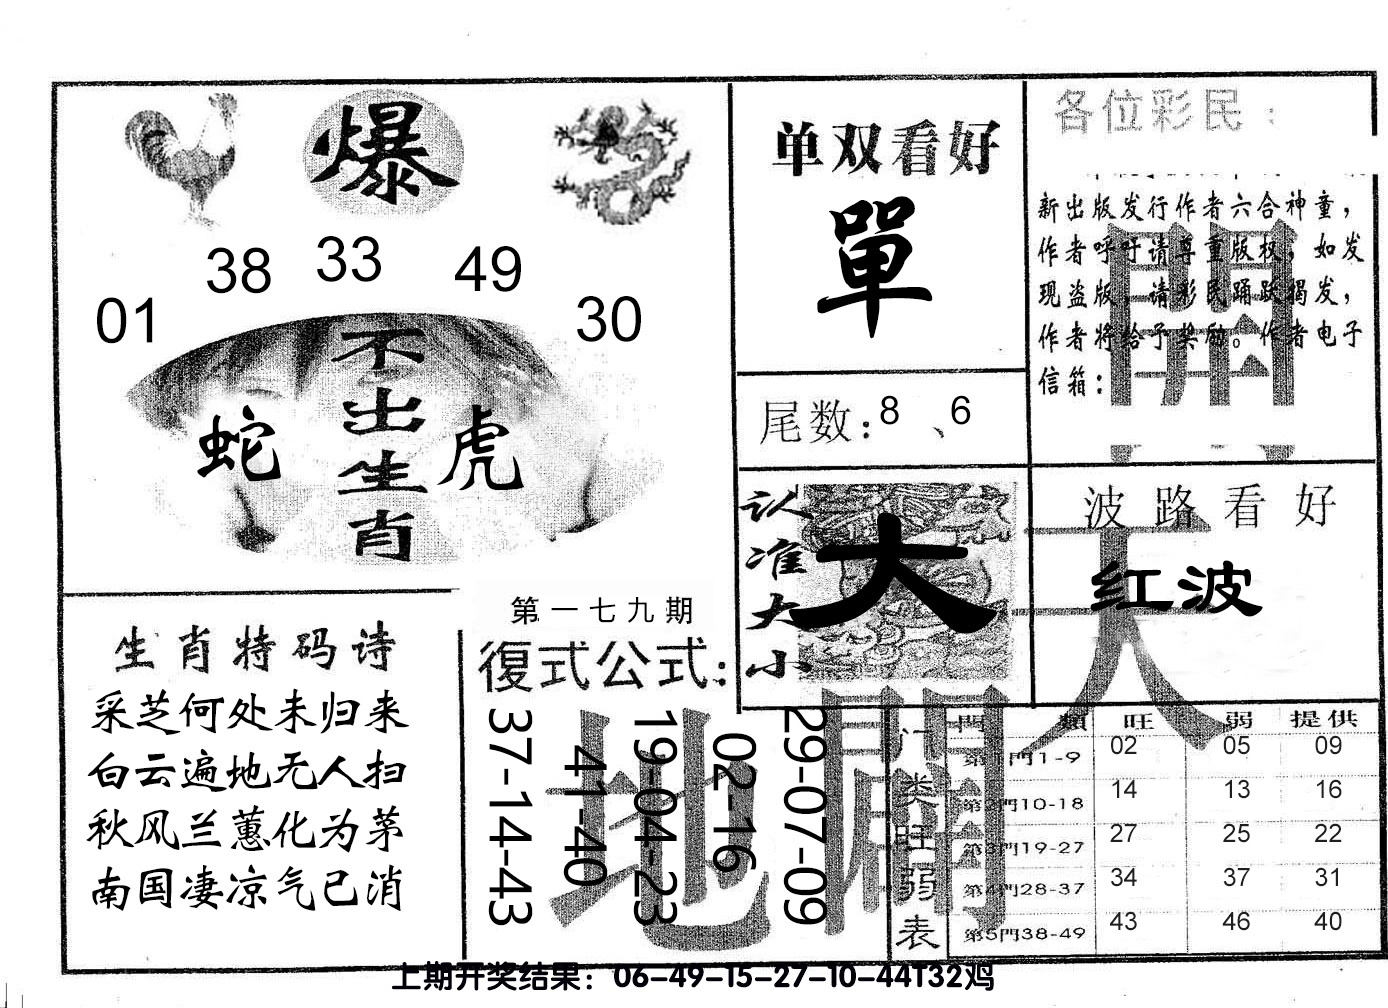 爆
38 33 49
01 30
不出生肖
蛇 虎
单双看好
單
尾数：8、6
各位彩民：
新出版发行作者六合神童，
作者呼吁请尊重版权，如发
现盗版，请彩民踊跃揭发，
作者将给予奖励。作者电子
信箱：
開
认准大小
大
波路看好
红波
天
生肖特码诗
采芝何处未归来
白云遍地无人扫
秋风兰蕙化为茅
南国凄凉气已消
第一七九期
復式公式：
37-14-43
41-40
19-04-23
02-16
29-07-09
地
門类旺弱表
門類 旺 弱 提供
第1門1-9 02 05 09
第2門10-18 14 13 16
第3門19-27 27 25 22
第4門28-37 34 37 31
第5門38-49 43 46 40
上期开奖结果：06-49-15-27-10-44T32鸡